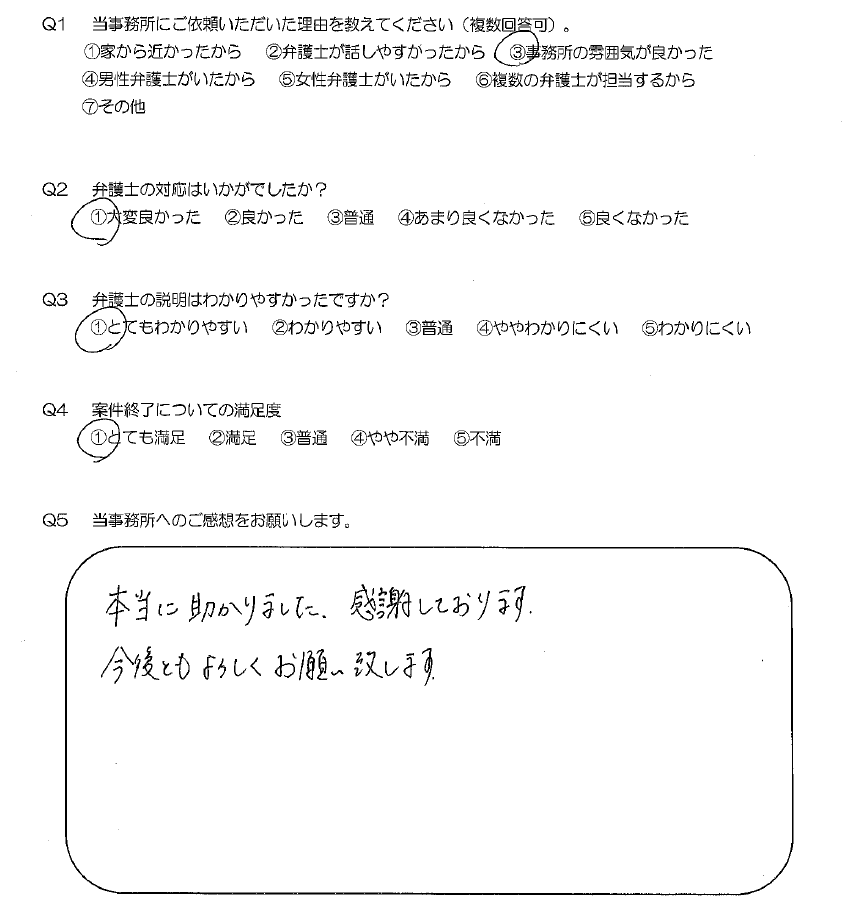 Q1 当事務所にご依頼いただいた理由を教えてください（複数回答可）。
①家から近かったから ②弁護士が話しやすかったから ③事務所の雰囲気が良かった
④男性弁護士がいたから ⑤女性弁護士がいたから ⑥複数の弁護士が担当するから
⑦その他
Q2 弁護士の対応はいかがでしたか？
①大変良かった ②良かった ③普通 ④あまり良くなかった ⑤良くなかった
Q3 弁護士の説明はわかりやすかったですか？
①とてもわかりやすい ②わかりやすい ③普通 ④ややわかりにくい ⑤わかりにくい
Q4 案件終了についての満足度
①とても満足 ②満足 ③普通 ④やや不満 ⑤不満
Q5 当事務所へのご感想をお願いします。
本当に助かりました、感謝しております。
今後ともよろしくお願い致します。